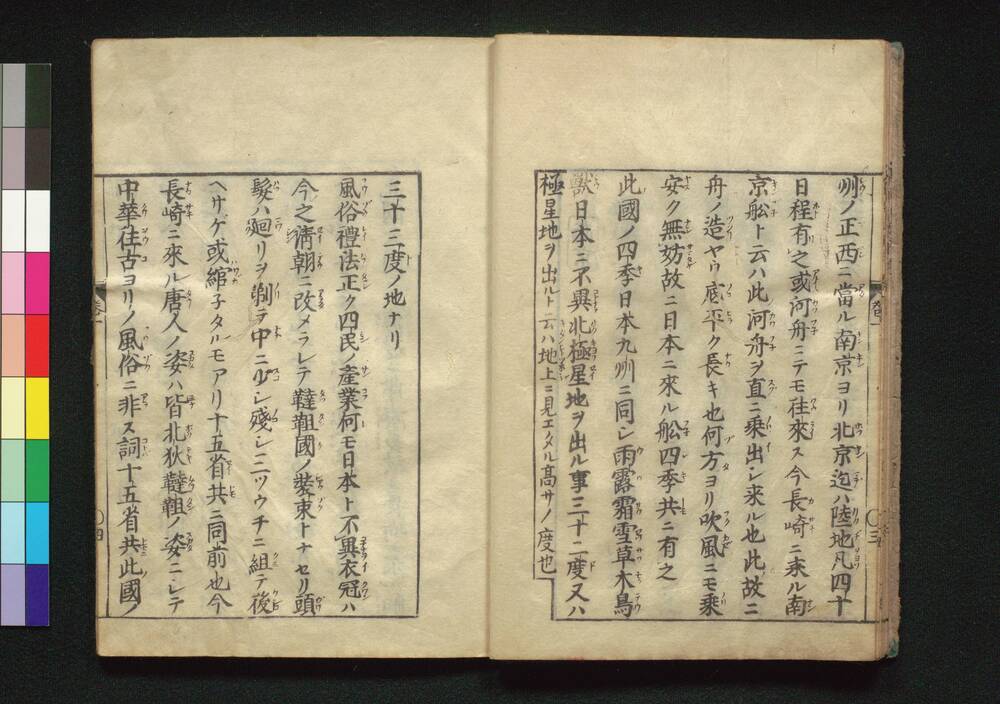 州ノ正西ニ當ル南京ヨリ北京迄ハ陸地凡四十
日程有之或河舟ニテモ往來ス今長崎ニ来ル南
京舩ト云ハ此河舟ヲ直ニ乗出シ来ル也此故ニ
舟ノ造ヤウ底平ク長キ也何方ヨリ吹風ニモ乗
安ク無妨故ニ日本ニ來ル舩四季共ニ有之
此國ノ四季日本九州ニ同シ雨露霜雪草木鳥
獣日本ニ不異北極星地ヲ出ル事三十二度又ハ
極星地ヲ出ルト云ハ地上ニ見エタル高サノ度也
三十三度ノ地ナリ
風俗禮法正ク四民ノ産業何モ日本ト不異衣冠ハ
今之清朝ニ改メラレテ韃靼國ノ装束トナセリ頭
髮ハ廻リヲ剃テ中ニ少シ殘シ三ツウチニ組テ後
ヘサゲ或綰子タルモアリ十五省共ニ同前也今
長崎ニ來ル唐人ノ姿ハ皆北狄韃靼ノ姿ニシテ
中華往古ヨリノ風俗ニ非ス詞十五省共此國ノ
卷一
三
卷一
四